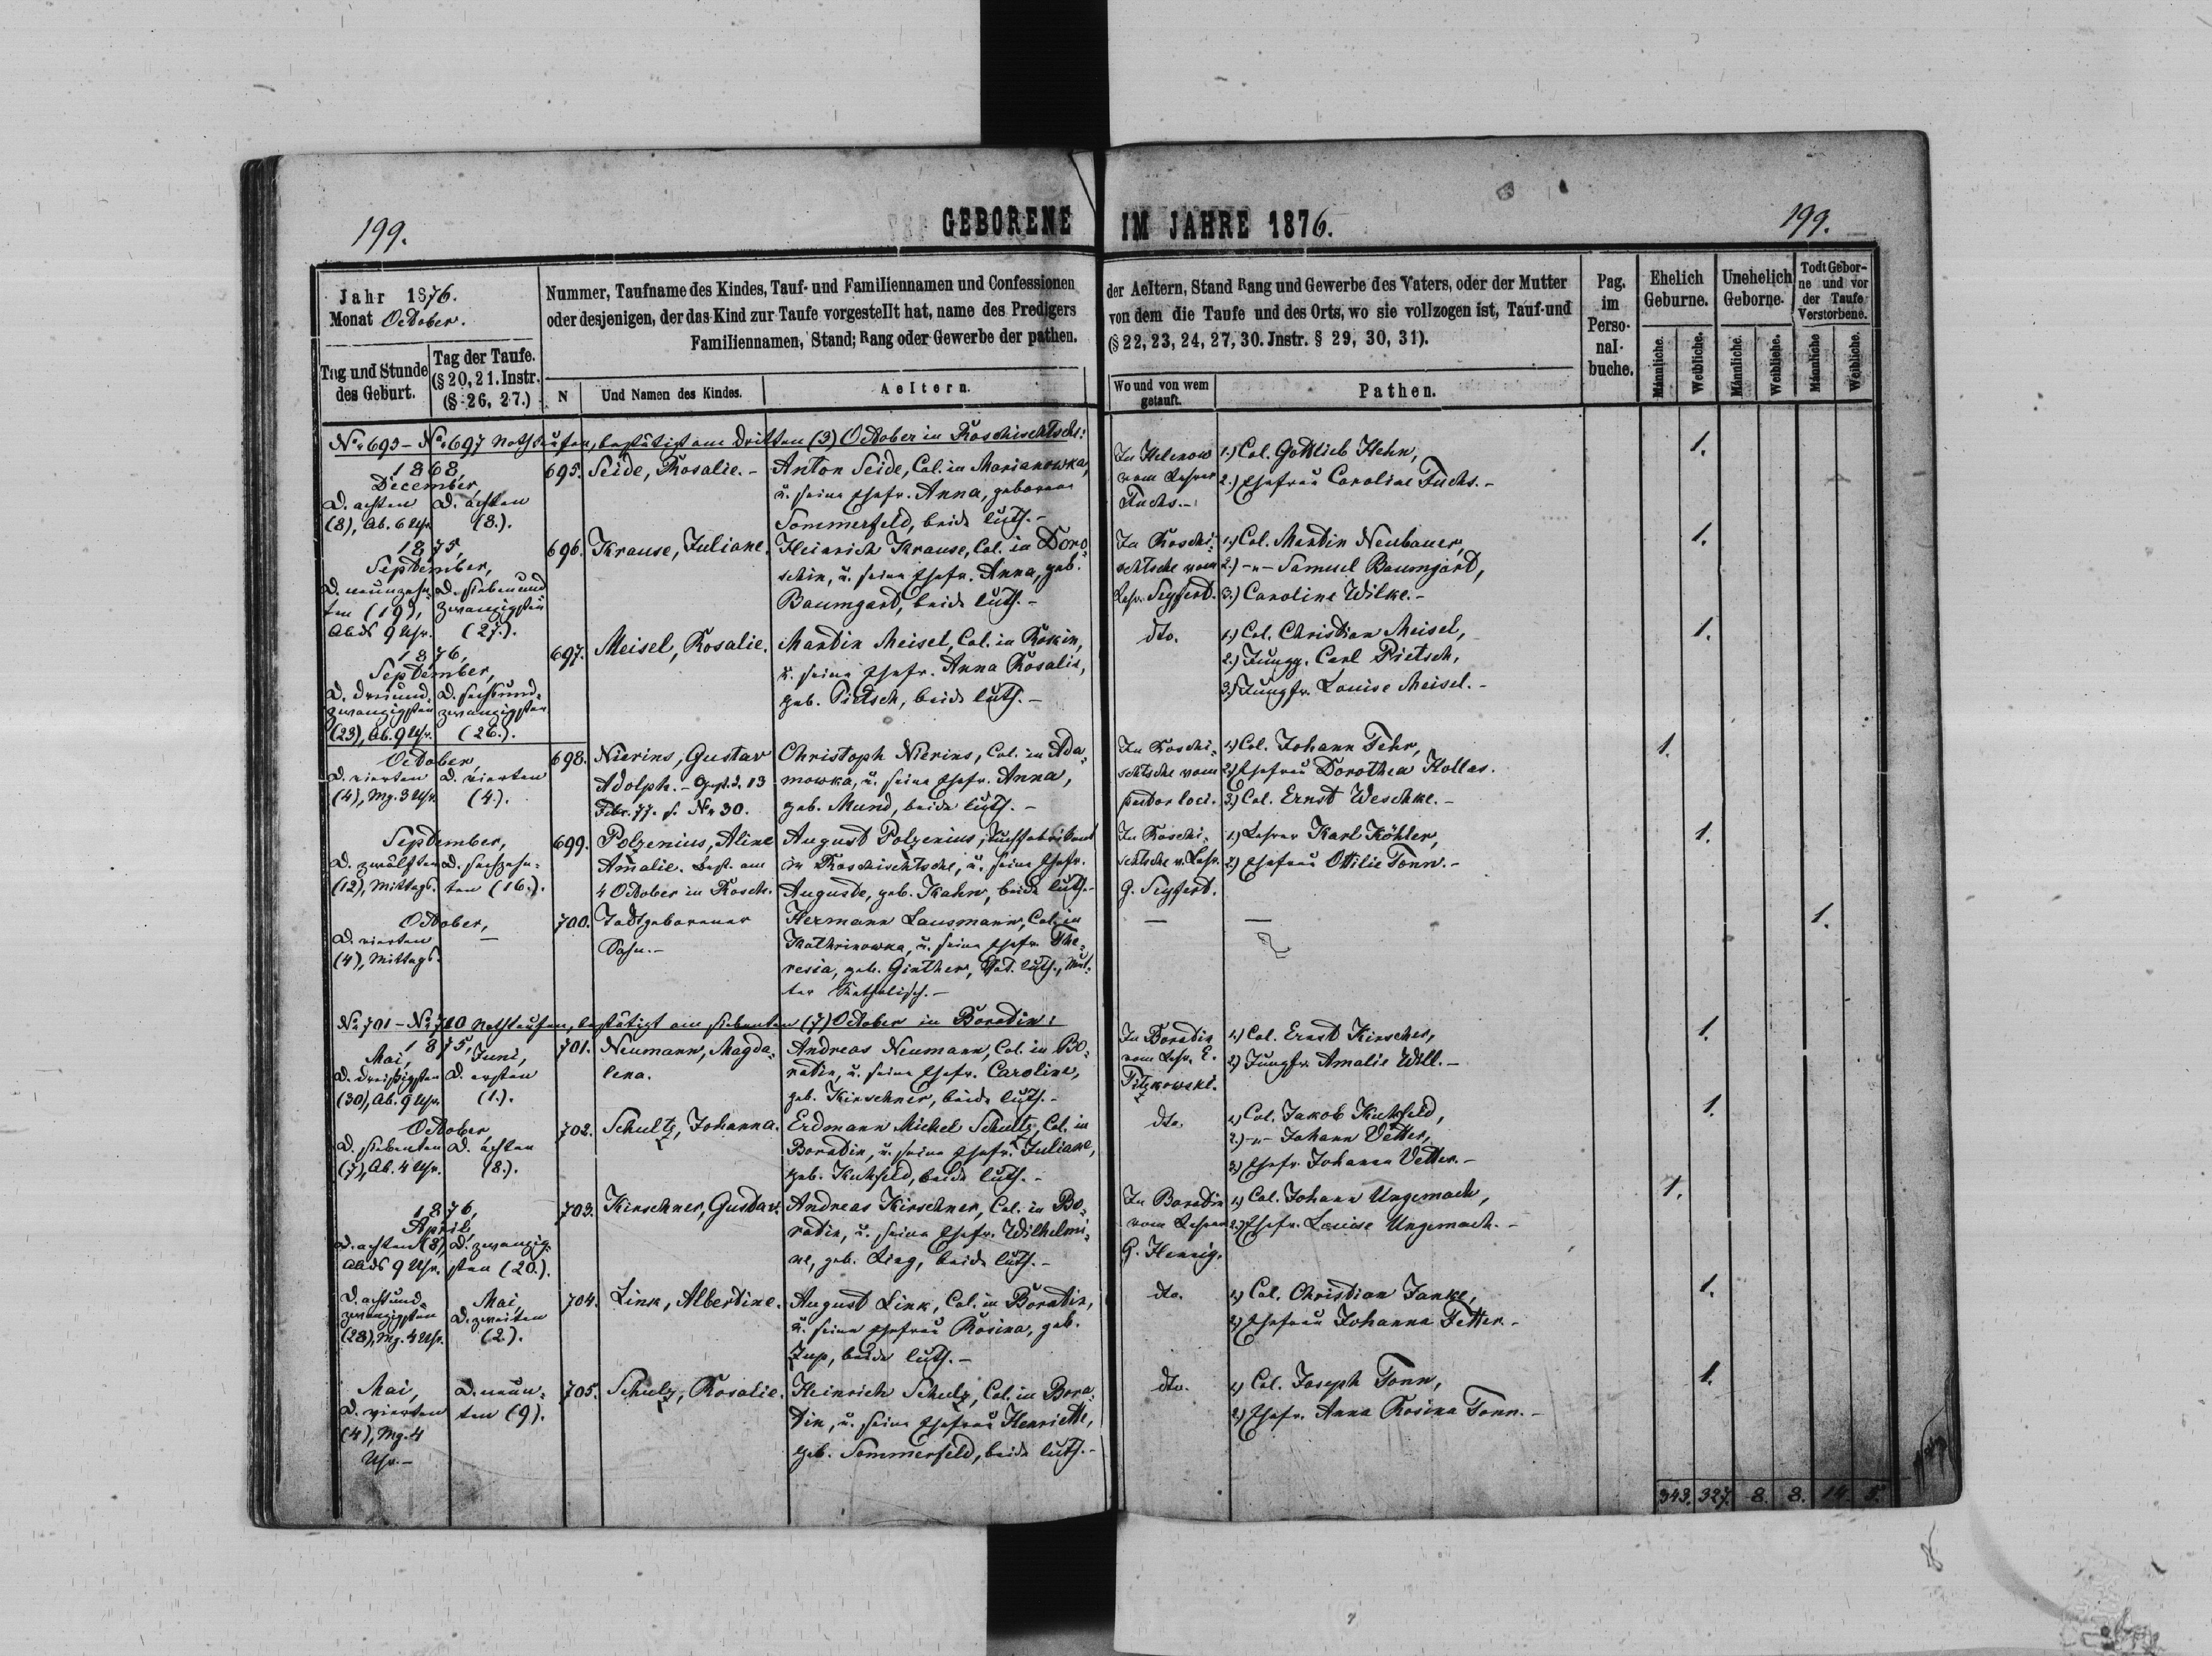 199.
GEBORENE
IM JAHRE 1876.
199.
Jahr 1876.
Monat October.
Tag und Stunde des Geburt.
Tag der Taufe. (§ 20, 21. Instr. (§ 26, 27.)
Nummer, Taufname des Kindes, Tauf- und Familiennamen und Confessionen
oder desjenigen, der das Kind zur Taufe vorgestellt hat, name des Predigers
Familiennamen, Stand; Rang oder Gewerbe der pathen.
N
Und Namen des Kindes.
Aeltern.
der Aeltern, Stand Rang und Gewerbe des Vaters, oder der Mutter
von dem die Taufe und des Orts, wo sie vollzogen ist, Tauf-und
(§ 22, 23, 24, 27, 30. Jnstr. § 29, 30, 31).
Wo und von wem getauft.
Pathen.
Pag. im Perso- nal- buche.
Ehelich Geburne.
Unehelich Geborne.
Todt Gebor- ne und vor der Taufe Verstorbene.
Männliche.
Weibliche.
Männliche.
Weibliche.
Männliche
Weibliche.
No 695 - No 697 Nothtaufen, bestätigt am dritten (3) October in Roschischtsche:
1868,
December,
D. achten
(8), Ab. 6 Uhr.
D. achten
(8.).
695.
Seide, Rosalie. -
Anton Seide, Col. in Marianowka,
u. seine Ehefr. Anna, geborene
Sommerfeld, beide luth. -
In Helenow
vom Lehrer
Fuchs. -
1.) Col. Gottlieb Hehn,
2.) Ehefrau Caroline Fuchs. -
1.
1875,
September,
D. neunzehn-
ten (19),
Abds 9 Uhr.
D. siebenund
zwanzigsten
(27.).
696.
Krause, Juliane.
Heinrich Krause, Col. in Doro-
schin, u. seine Ehefr. Anna, geb.
Baumgard, beide luth. -
In Roschi-
schtsche vom
Lehr. Seyfert.
1.) Col. Martin Neubauer,
2.) -"- Samuel Baumgart,
3.) Caroline Wilke. -
1.
1876,
September,
D. dreiund-
zwanzigsten
(23), Ab. 9 Uhr.
D. sechsund-
zwanzigsten
(26.).
697.
Meisel, Rosalie.
Martin Meisel, Col. in Rokin,
u. seine Ehefr. Anna Rosalie,
geb. Pietsch, beide luth. -
dto.
1.) Col. Christian Meisel,
2.) Jungg. Carl Pietsch,
3.) Jungfr. Louise Meisel. -
1.
October,
D. vierten
(4), Mg. 3 Uhr.
D. vierten
(4.).
698.
Nierins, Gustav
Adolph. - Gest. d. 13
Febr. 77. s. No 30.
Christoph Nierins, Col. in Ada-
mowka, u. seine Ehefr. Anna,
geb. Mund, beide luth. -
In Roschi-
schtsche vom
pastor loci.
1.) Col. Johann Fehr,
2.) Ehefrau Dorothea Kollas.
3.) Col. Ernst Weschke. -
1.
September,
D. zwölften
(12), Mittags.
D. sechzehn-
ten (16.).
699.
Polzenius, Aline
Amalie. Best. am
4 October in Rosch.
August Polzenius, Tuchfabrikant
in Roschischtsche, u. seine Ehefr.
Auguste, geb. Kahn, beide luth. -
In Roschi-
schtsche v. Lehr.
G. Seyfert.
1.) Lehrer Karl Köhler,
2.) Ehefrau Ottilie Tonn. -
1.
October,
D. vierten
(4), Mittags.
—
700.
Todtgeborener
Sohn. -
Hermann Lausmann, Col. in
Kathrinowka, u. seine Ehefr. The-
resia, geb. Ginther, Vat. luth., Mut-
ter Katholisch. -
—
—
1.
No 701 - No 710 Nothtaufen, bestätigt am siebenten (7) October in Boratin:
1875,
Mai,
D. dreißigsten
(30), Ab. 9 Uhr.
Juni,
D. ersten
(1.).
701.
Neumann, Magda-
lena.
Andreas Neumann, Col. in Bo-
ratin, u. seine Ehefr. Caroline,
geb. Kirschner, beide luth. -
In Boratin
vom Lehr. E.
Titzkowski.
1.) Col. Ernst Kirscher,
2.) Jungfr. Amalie Will. -
1.
October,
D. siebenten
(7), Ab. 4 Uhr.
D. achten
(8.).
702.
Schultz, Johanna.
Erdmann Michel Schultz, Col. in
Boratin, u. seine Ehefr. Juliane,
geb. Kuhfeld, beide luth. -
dto.
1.) Col. Jakob Kuhfeld,
2.) -"- Johann Vetter,
3.) Ehefr. Johanna Vetter. -
1.
1876,
April,
D. achten (8),
Abds 9 Uhr.
D. zwanzig-
sten (20.).
703.
Kirschner, Gustav.
Andreas Kirschner, Col. in Bo-
ratin, u. seine Ehefr. Wilhelmi-
ne, geb. Zieg, beide luth. -
In Boratin
vom Lehrer
G. Hennig.
1.) Col. Johann Ungemach,
2.) Ehefr. Louise Ungemach. -
1.
D. achtund-
zwanzigsten
(28), Mg. 4 Uhr.
Mai,
D. zweiten
(2.).
704.
Link, Albertine.
August Link, Col. in Boratin,
u. seine Ehefrau Rosina, geb.
Zup, beide luth. -
dto.
1.) Col. Christian Janke,
2.) Ehefrau Johanna Fetter. -
1.
Mai,
D. vierten
(4), Mg. 4
Uhr. -
D. neun-
ten (9).
705.
Schulz, Rosalie.
Heinrich Schulz, Col. in Bora-
tin, u. seine Ehefrau Henriette,
geb. Sommerfeld, beide luth. -
dto.
1.) Col. Joseph Tonn,
2.) Ehefr. Anna Rosina Tonn. -
1.
343. 327. 8. 8. 14. 5.